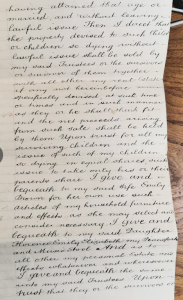 having attained that age or
married and without leaving
lawful issue Then I direct that
the property devised to such child
or children so dying without
lawful issue shall be sold by
my said Trustees or the survivors
or survivor of them together
with the other real Estate
if any not hereinbefore
specifically devised at such time
or times and in such manner
as they or he shall think fit
and the net proceeds arising
from such sale shall be held
by them Upon trust for all my
surviving children and the
issue of such of my children
so dying in equal shares such
issue to take only his or their
parents share I give and
bequeath to my said wife Emily
for her own use such
articles of my household furniture
and effects as she may select or
consider necessary I give and
bequeath to my said Daughter
Elizabeth my
And
all other my personal Estate and
effects whatsoever and wheresoever
I give and bequeath the same
unto my said Trustees Upon
trust that they or the survivors or